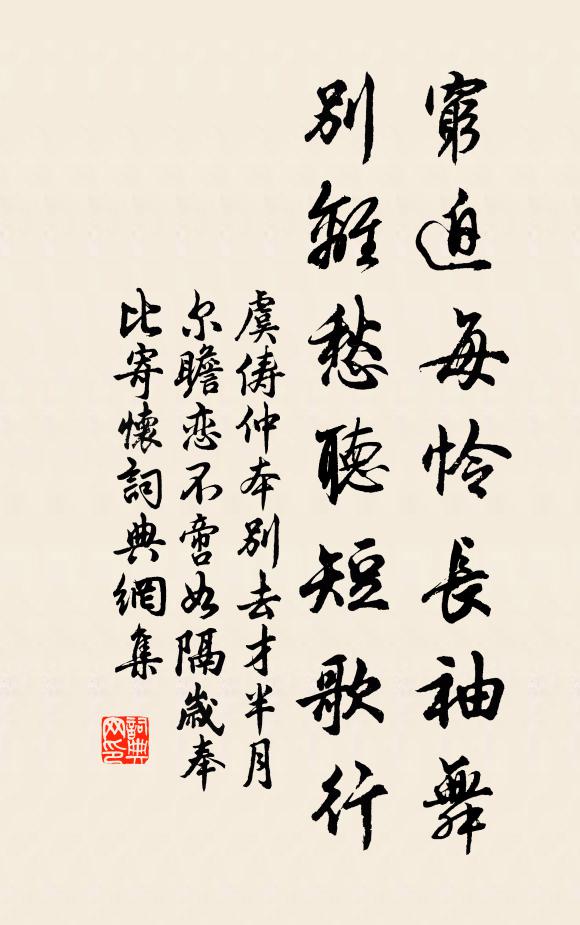 窮迫每怜長袖舞
別離愁聽短歌行
虞儔仲本別去才半月
尔瞻恋不啻如隔歲奉
比寄懷詞典網集
詞典
网印